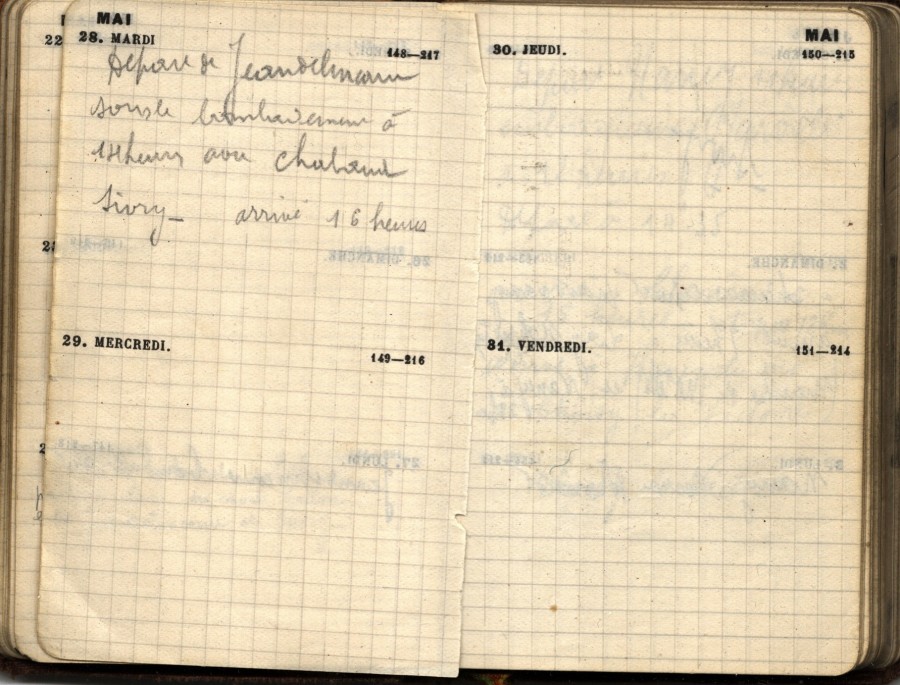 MAI
22
28. MARDI
148—217
Départ de Jeandelincourt
sous le bombardement à
14 heures avec chaland
Sivry — arrivé 16 heures
29. MERCREDI.
149—216
MAI
30. JEUDI.
150—215
31. VENDREDI.
151—214